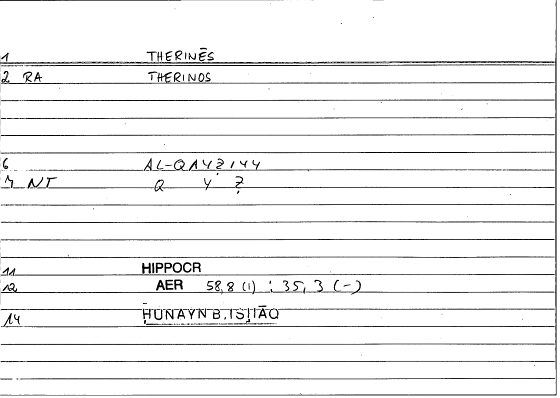 1 THERINĒS
2 RA THERINOS
6 AL-QAYẒIYY
7 NT Q Y Ẓ
11 HIPPOCR
12 AER 58,8 (1) : 35, 3 (-)
14 ḤUNAYN B. ISḤĀQ